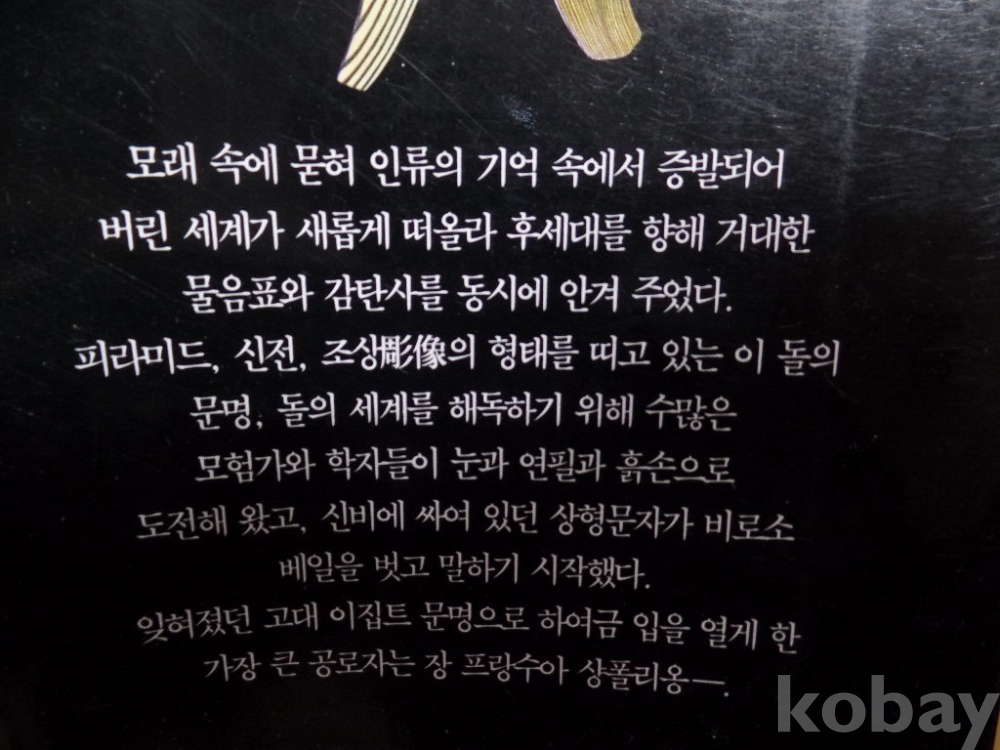 모래 속에 묻혀 인류의 기억 속에서 증발되어
버린 세계가 새롭게 떠올라 후세대를 향해 거대한
물음표와 감탄사를 동시에 안겨 주었다.
피라미드, 신전, 조상彫像의 형태를 띠고 있는 이 돌의
문명, 돌의 세계를 해독하기 위해 수많은
모험가와 학자들이 눈과 연필과 흙손으로
도전해 왔고, 신비에 싸여 있던 상형문자가 비로소
베일을 벗고 말하기 시작했다.
잊혀졌던 고대 이집트 문명으로 하여금 입을 열게 한
가장 큰 공로자는 장 프랑수아 샹폴리옹—.
kobay